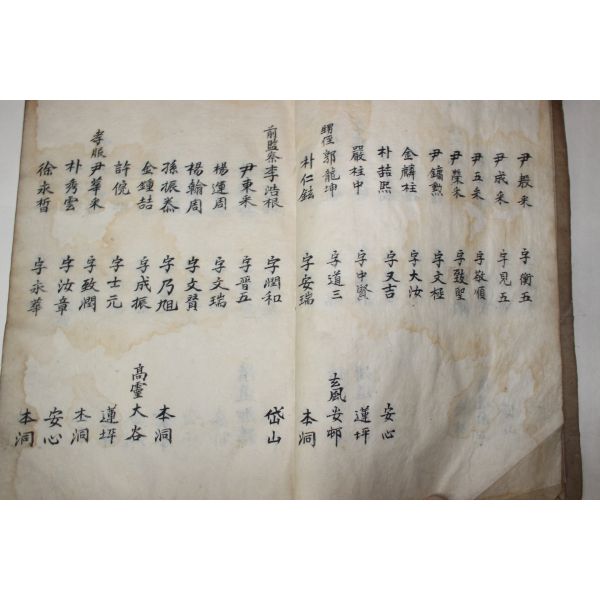 尹殷釆 字衡五
尹成釆 字見五
尹五釆 字敬順
尹榮釆 字致聖
尹鏞勲 字文極
金麟柱 字大汝
朴喆熙 字又吉 安心
嚴柱中 字中賢 蓮坪
甥侄 郭龍坤 字道三 玄風 安邨
朴仁鉉 字安瑞 本洞
前監察 李浩根 字潤和 岱山
尹東釆 字晋五
楊運周 字文瑞
楊翰周 字文賛
孫振泰 字乃旭 本洞
金鍾喆 字成振 高靈 大谷
許俒 字士元 蓮坪
孝服 尹華釆 字致潤 本洞
朴秀雲 字汝章 安心
徐永晳 字永華 本洞